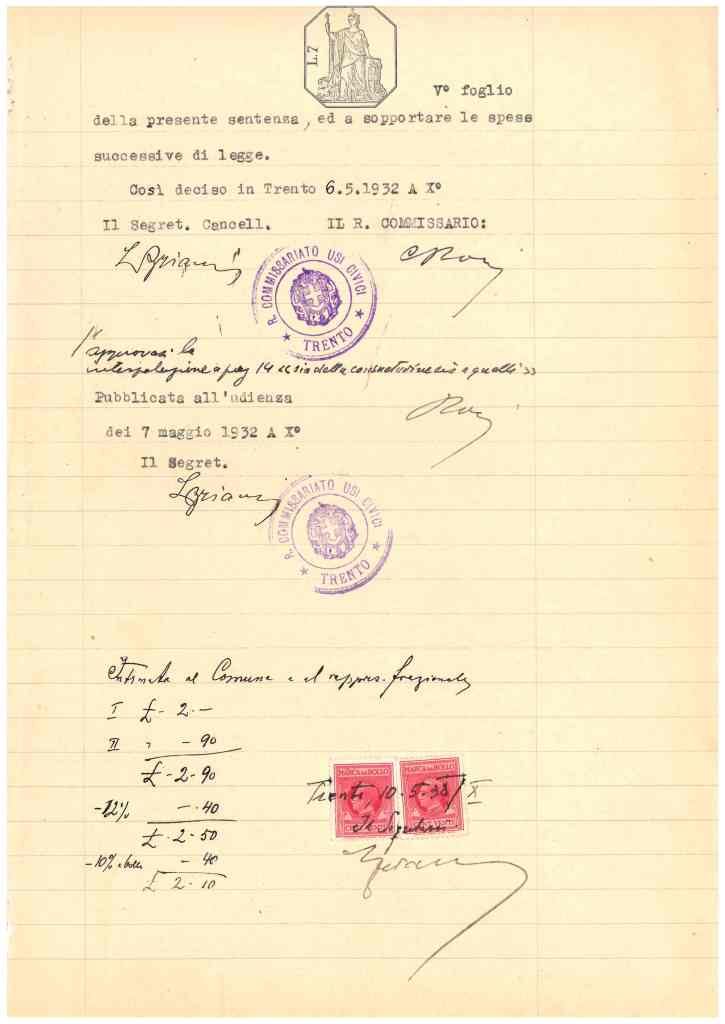 L.7
Vº foglio
della presente sentenza, ed a sopportare le spese
successive di legge.
Così deciso in Trento 6.5.1932 A Xº
Il Segret. Cancell. IL R. COMMISSARIO:
R. COMMISSARIATO USI CIVICI
★ TRENTO ★
approvasi la
interpolazione a pag 14 << sia della consuetudine sia a quelli >>
Pubblicata all'udienza
dei 7 maggio 1932 A Xº
Il Segret.
R. COMMISSARIATO USI CIVICI
★ TRENTO ★
Intimata al Comune e al rappres. frazionale
I £ - 2 . —
II " - 90
£ - 2 - 90
- 12% - . 40
£ . 2 - 50
- 10% e bollo - 40
£ 2 - 10
MARCA DA BOLLO MARCA DA BOLLO
Trento 10.5.32/X
Il Segretario